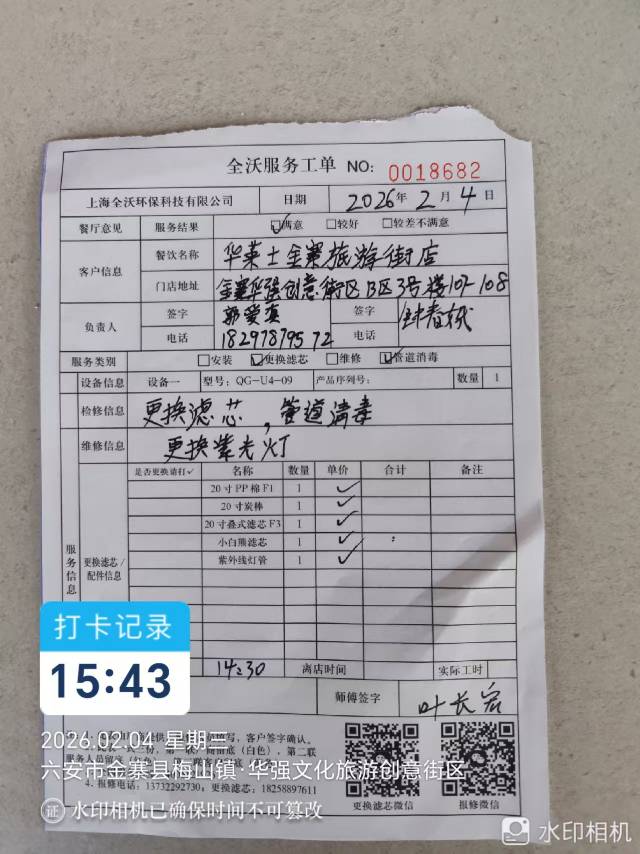 全沃服务工单 NO: 0018682
上海全沃环保科技有限公司 日期 2026年 2 月 4 日
餐厅意见 服务结果 ☑满意 □较好 □较差不满意
客户信息 餐饮名称 华莱士金寨旅游街店
门店地址 金寨华强创意街区B区3号楼107-108
负责人 签字 签字
电话 18297879572 电话
服务类别 □安装 ☑更换滤芯 □维修 ☑管道消毒
服务信息
设备信息 设备一 型号: QG-U4-09 产品序列号: 数量 1
检修信息 更换滤芯,管道消毒
维修信息 更换紫光灯
更换滤芯/配件信息
是否更换请打✓ 名称 数量 单价 合计 备注
20寸PP棉F1 1 ✓
20寸炭棒 1 ✓
20寸叠式滤芯F3 1 ✓
小白熊滤芯 1 ✓
紫外线灯管 1 ✓
打卡记录
15:43
14:30 离店时间 实际工时
师傅签字 叶长宏
客户签字确认。
(白色),第二联
4.报修电话:13732292730;更换滤芯:18258897611
更换滤芯微信 报修微信
2026.02.04 星期三
六安市金寨县梅山镇·华强文化旅游创意街区
证 水印相机已确保时间不可篡改
水印相机